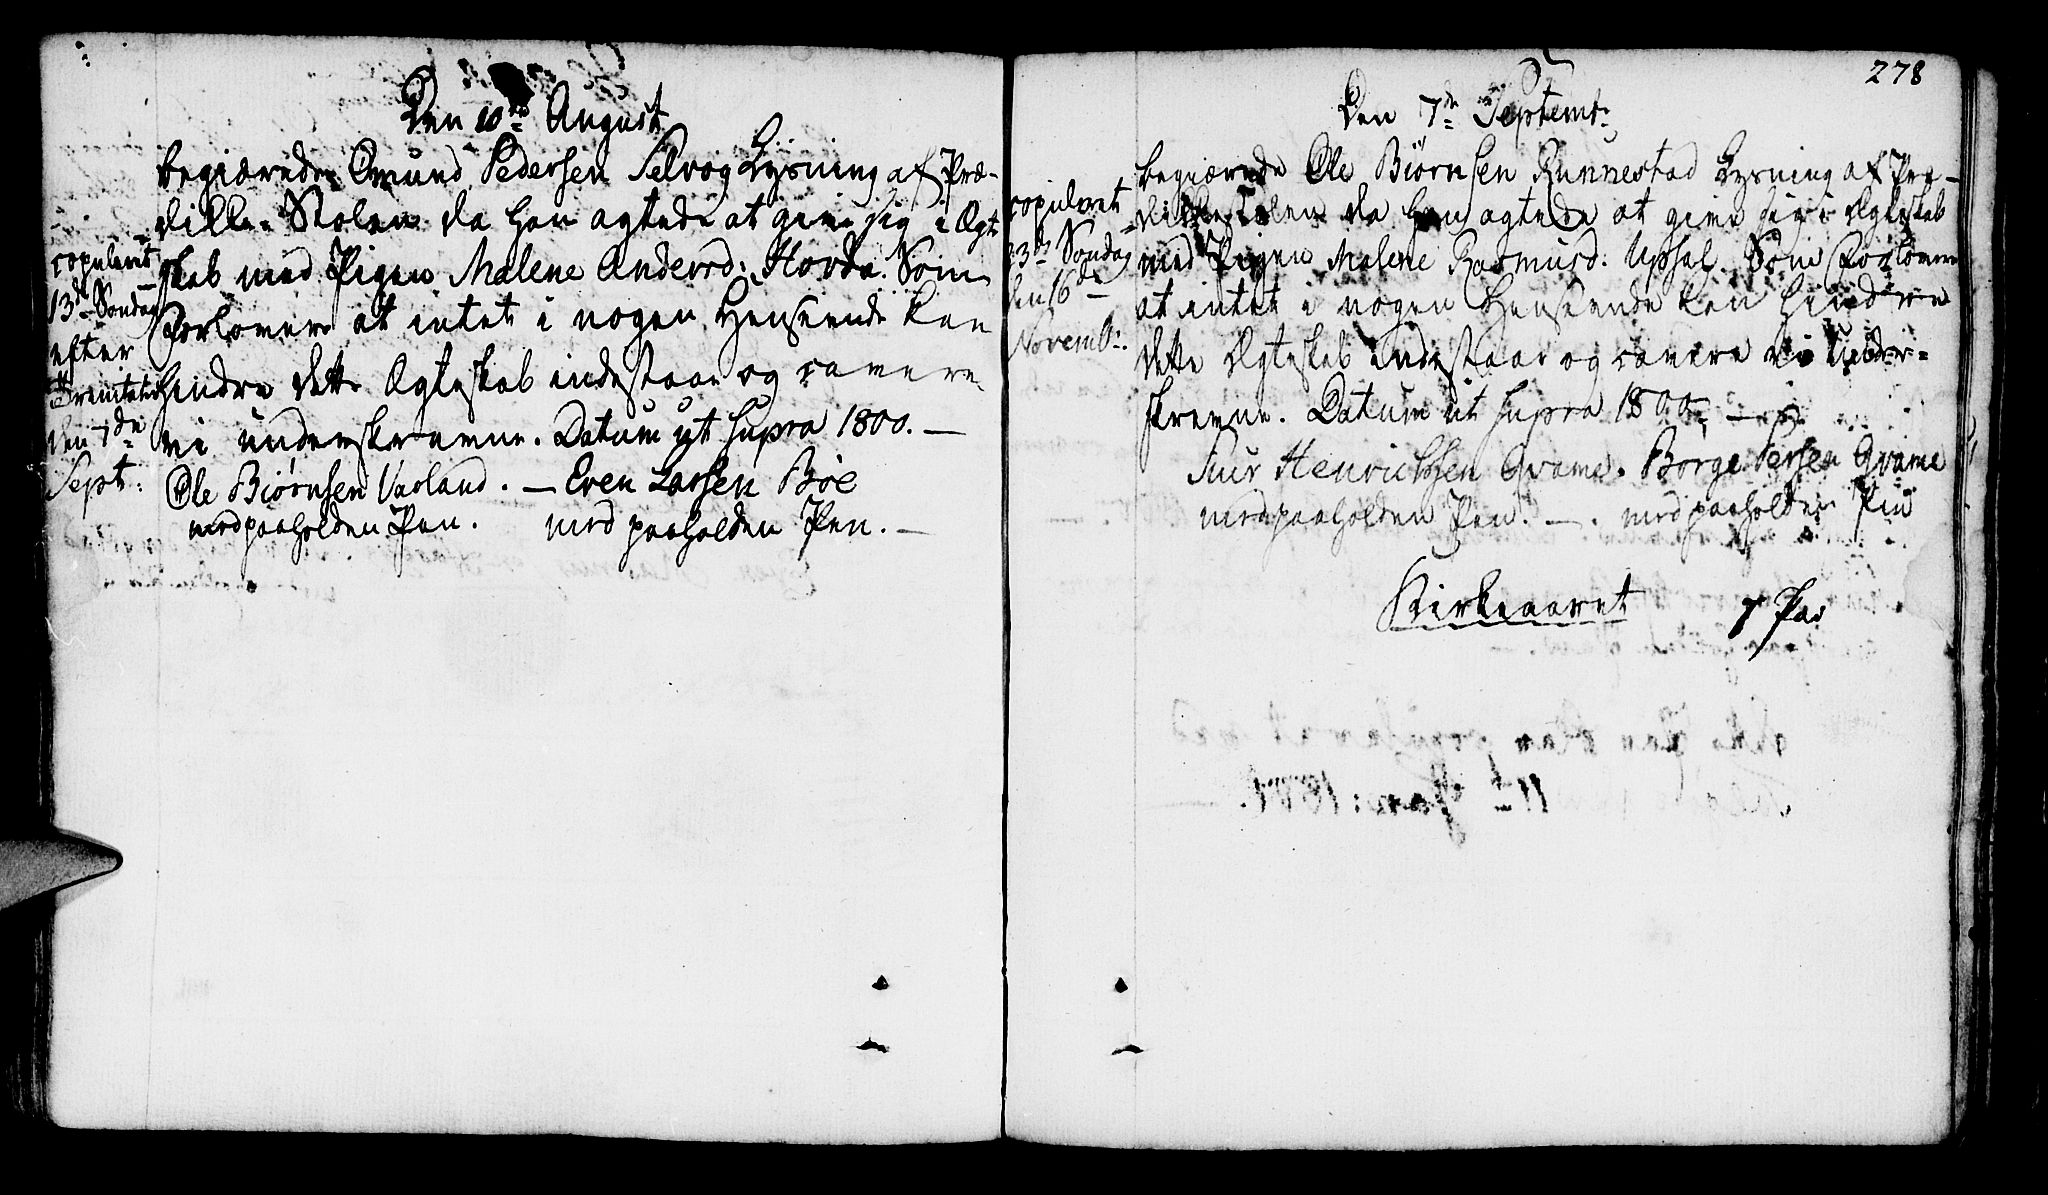 Den 10de August
begiærede Omund Pedersen Selvog Lysning af Præ-
dike-Stolen da han agtede at give sig i Ægte
skab med Pigen Malene Andersd: Horda. Som
Forlovere at intet i nogen Henseende kan
hindre dette Ægteskab indestaar og cavere
vi underskrevne. Datum ut supra 1800.
Ole Biørnsen Varland. — Even Larsen Bøe
med paaholden Pen. med paaholden Pen. —
copuleret
13de Søndag
efter
Trinitatis
den 7de
Sept:
278
Den 7de Septembr:
begiærede Ole Biørnsen Runnestad Lysning af Præ-
dikestolen da han agtede at give sig i Ægteskab
med Pigen Malene Rasmusd. Upsal. Som Forlovere
at intet i nogen Henseende kan hindre
dette Ægteskab indestaar og cavere vi under-
skrevne. Datum ut supra 1800 —
Siur Henrichsen Qvame. Børge Persen Qvame
med paaholden Pen. —. med paaholden Pen
copuleret
23de Søndag
den 16de
Novembr:
Kirkeaaret 7 Par